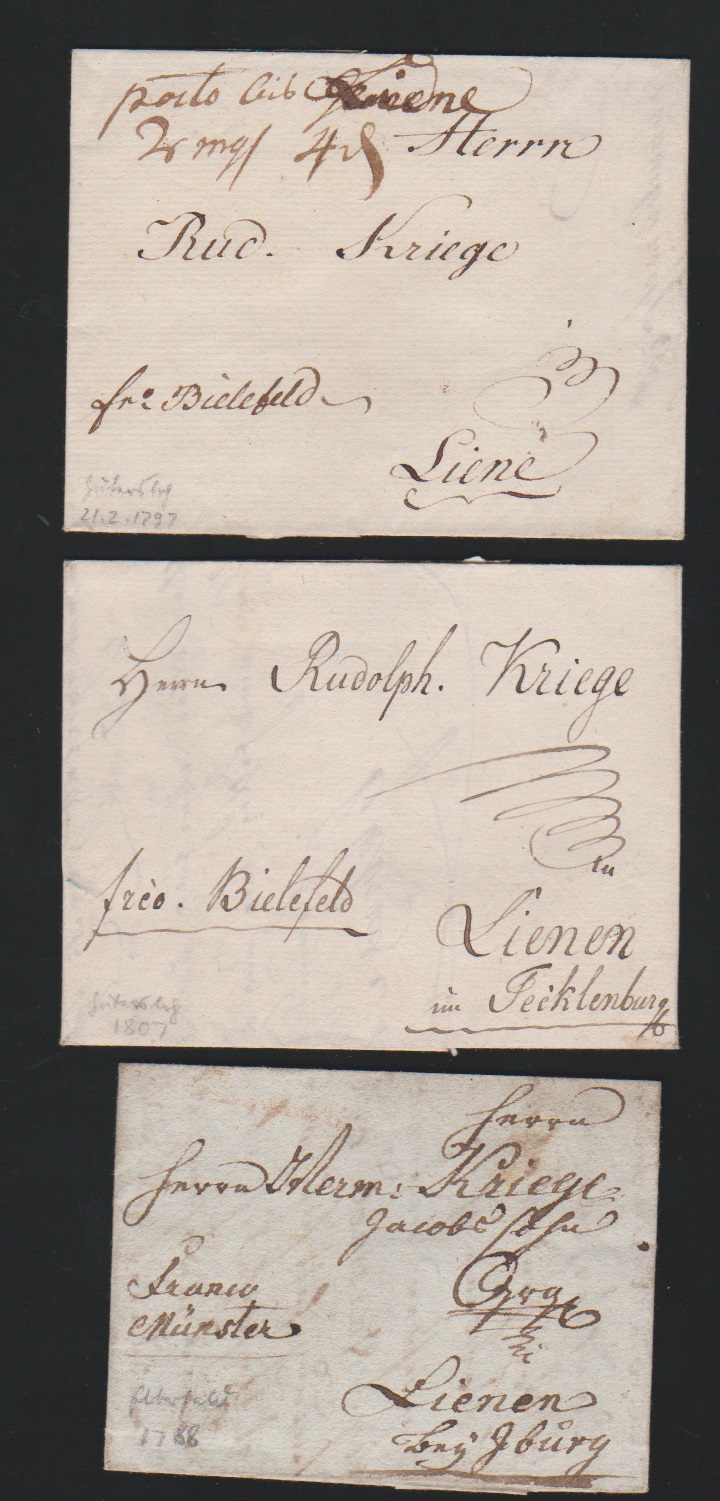 porto bis Liene
2 mgl 4 d Herrn
Rud. Kriege
frº Bielefeld
Liene
Gütersloh
21.2.1797
Herrn Rudolph. Kriege
in
frco. Bielefeld
Lienen
im Tecklenburg
Gütersloh
1807
Herrn
Herrn Herm: Kriege
Jacobs sohn
Franco
Münster
Lienen
bey Jburg
1788